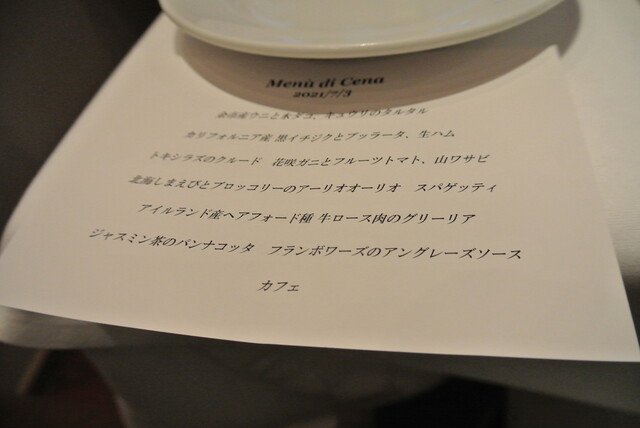 Menù di Cena
2021/7/3
余市産ウニと水ダコ、キュウリのタルタル
カリフォルニア産 黒イチジクとブッラータ、生ハム
トキシラズのクルード　花咲ガニとフルーツトマト、山ワサビ
北海しまえびとブロッコリーのアーリオオーリオ　スパゲッティ
アイルランド産ヘアフォード種 牛ロース肉のグリーリア
ジャスミン茶のパンナコッタ　フランボワーズのアングレーズソース
カフェ